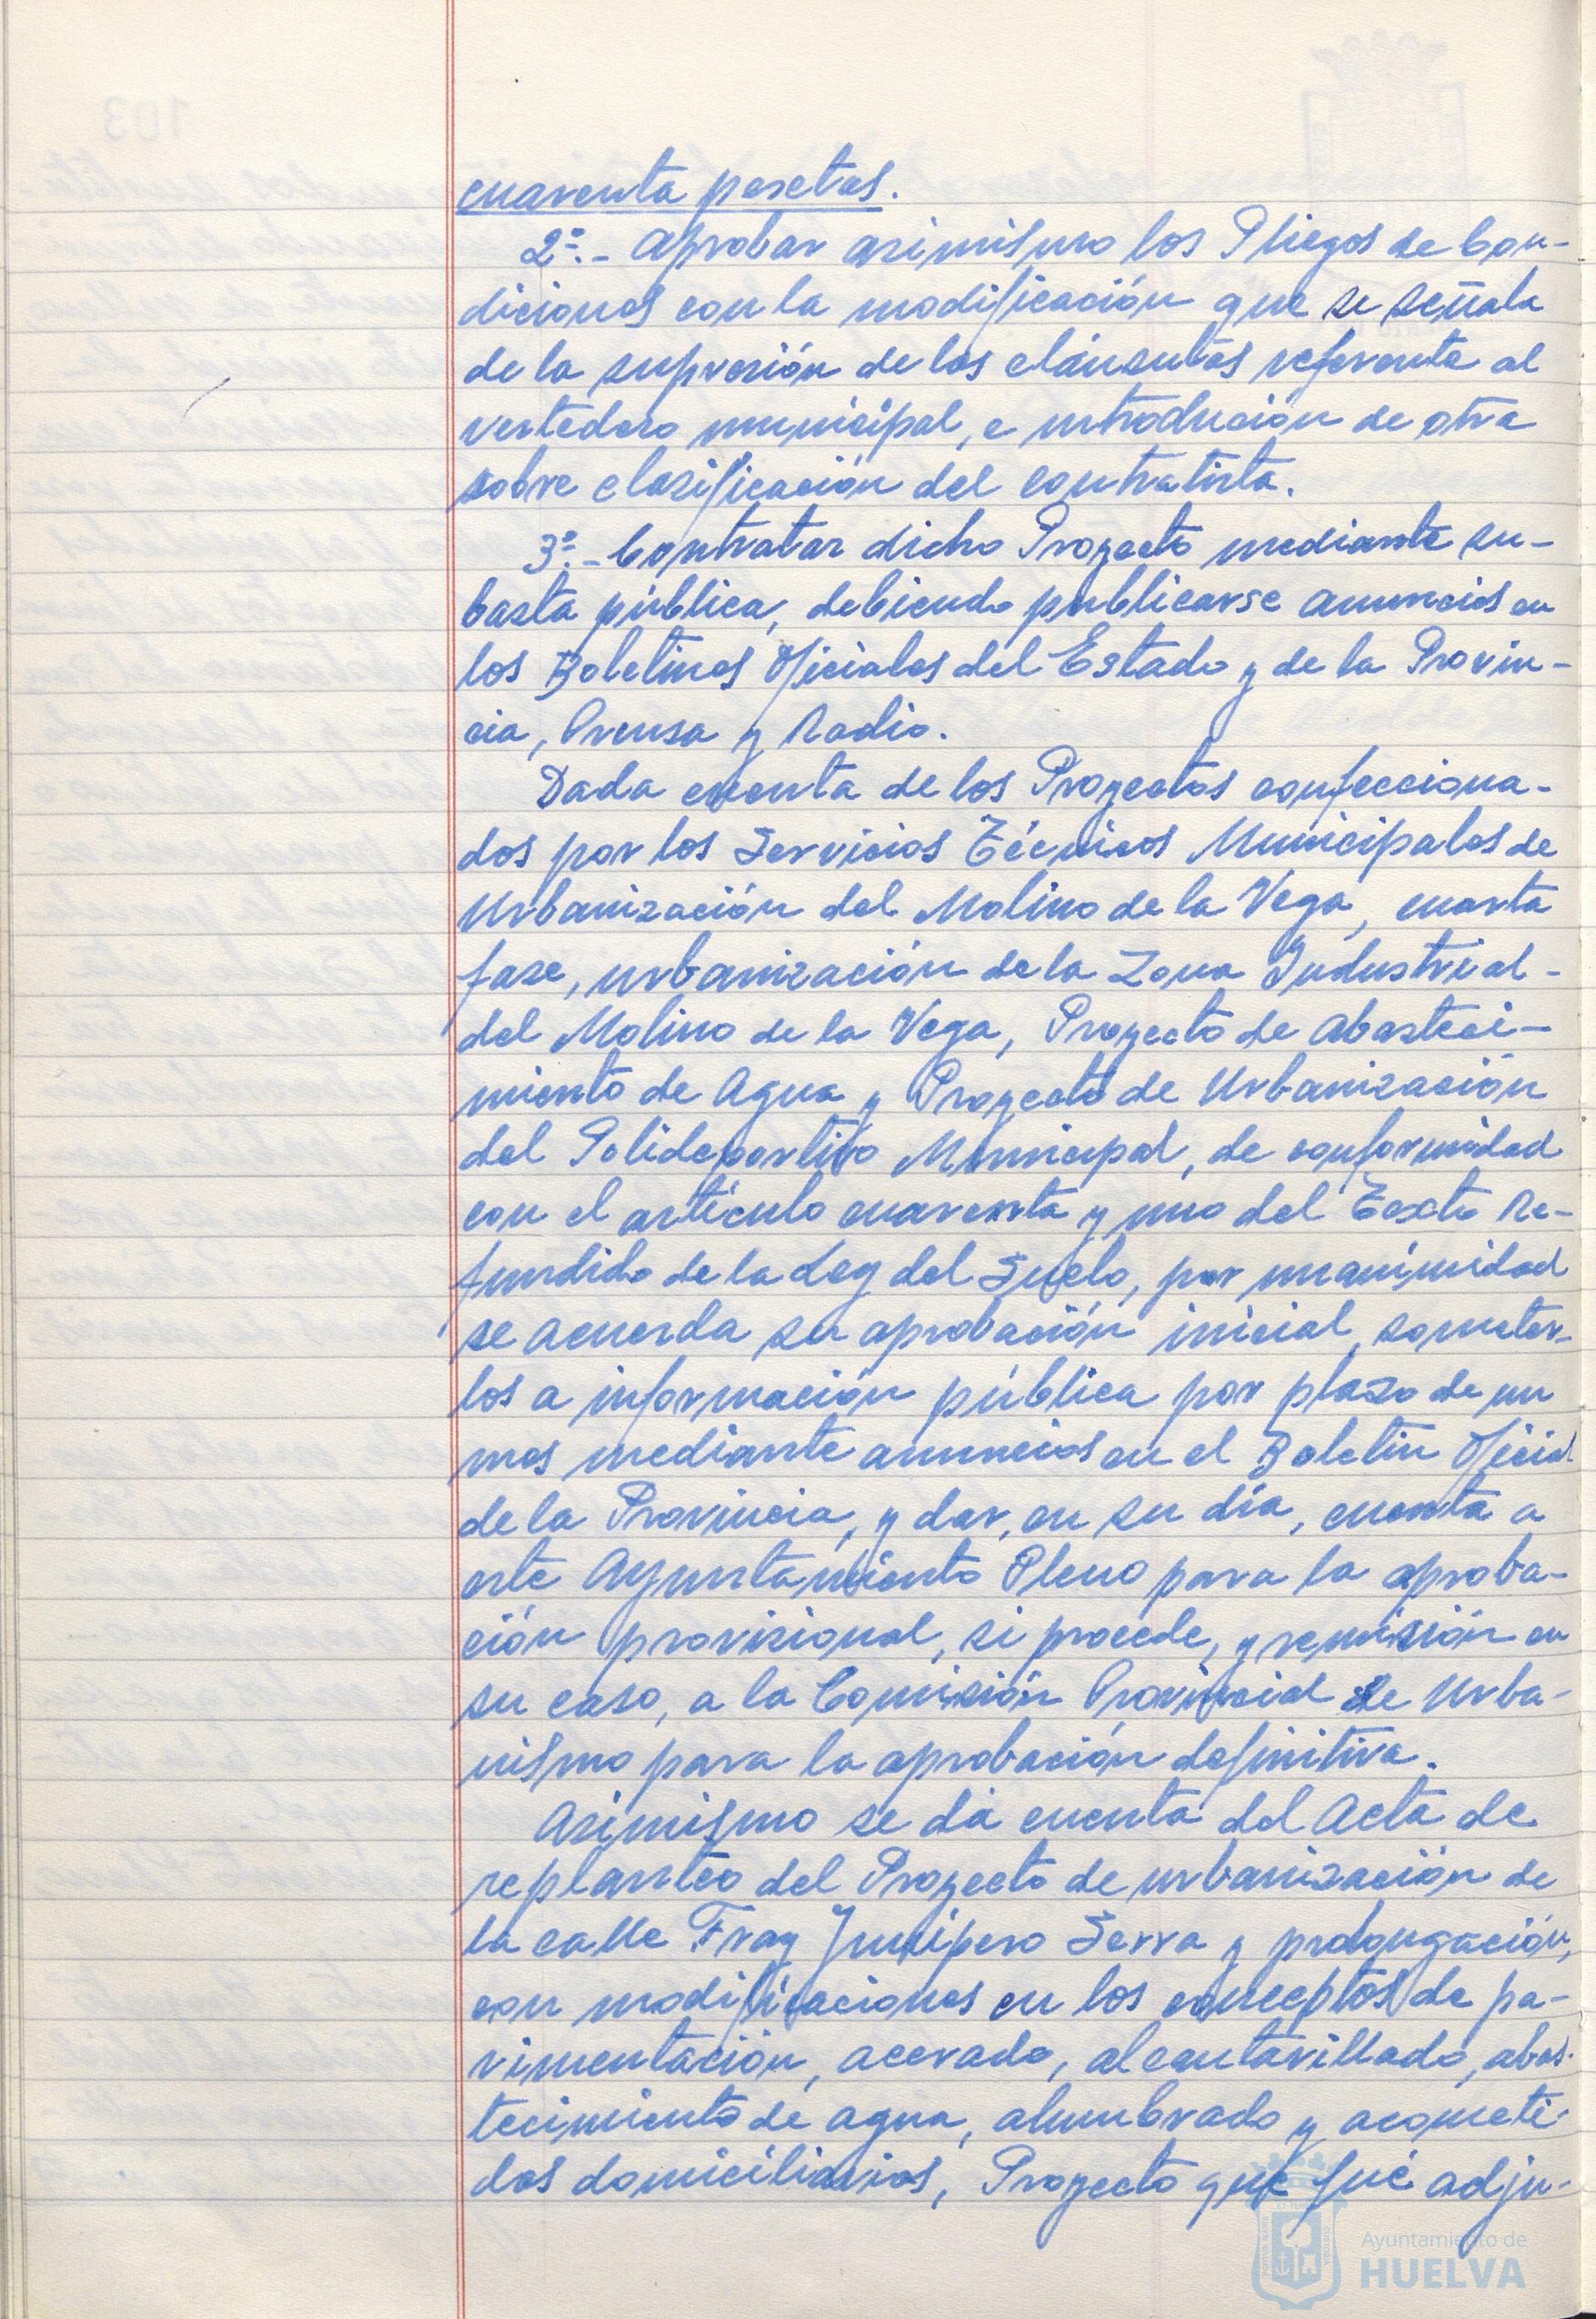 cuarenta pesetas.
2º.- Aprobar asimismo los Pliegos de Con-
diciones con la modificación que se señala
de la supresión de las cláusulas referente al
vertedero municipal, e introducion de otra
sobre clasificación del contratista.
3º.- Contratar dicho Proyecto mediante su-
basta pública, debiendo publicarse anuncios en
los Boletines Oficiales del Estado y de la Provin-
cia, Prensa y Radio.
Dada cuenta de los Proyectos confecciona-
dos por los Servicios Técnicos Municipales de
Urbanización del Molino de la Vega, cuarta
fase, urbanización de la Zona Industrial-
del Molino de la Vega, Proyecto de abasteci-
miento de Agua y Proyecto de Urbanización
del Polideportivo Municipal, de conformidad
con el artículo cuarenta y uno del Texto Re-
fundido de la Ley del Suelo, por unanimidad
se acuerda su aprobación inicial, someter-
los a información pública por plazo de un
mes mediante anuncios en el Boletín Oficial
de la Provincia, y dar, en su día, cuenta a
este Ayuntamiento Pleno para la aproba-
ción provisional, si procede, y remisión en
su caso, a la Comisión Provincial de Urba-
nismo para la aprobación definitiva.
Asimismo se dá cuenta del Acta de
replanteo del Proyecto de urbanización de
la calle Fray Junípero Serra y prolongación,
con modificaciones en los conceptos de pa-
vimentación, acerado, alcantarillado, abas-
tecimiento de agua, alumbrado y acometi-
das domiciliarias, Proyecto que fué adju-
Ayuntamiento de
HUELVA